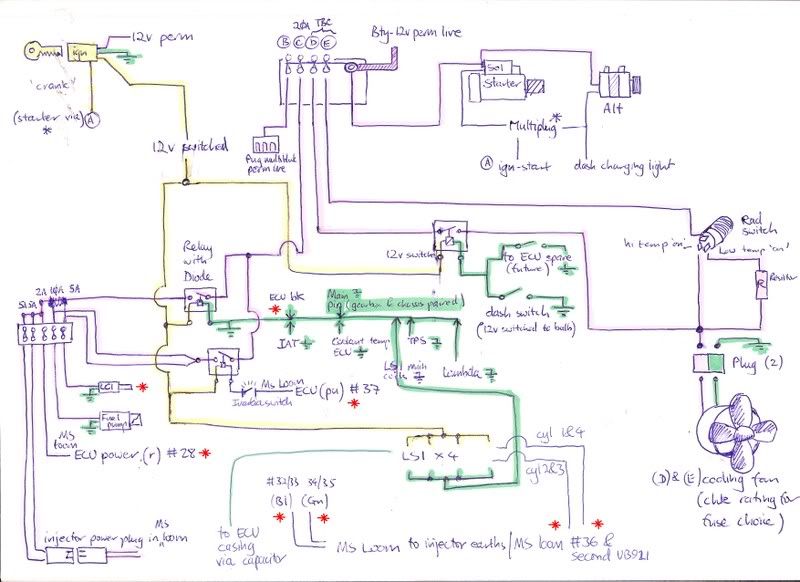 12v perm
ign
'crank'
(starter via) A
*
12v switched
20A TBC
B C D E
Bty-12v perm live
Plug multiblock
perm live
Sol
Starter
Alt
Multiplug *
A ign-start
dash charging light
Rad
switch
hi temp 'on'
Low temp 'on'
R
Resistor
12v switched
to ECU spare
(future)
dash switch
(12v switched to bulb)
Relay
with
Diode
2A 10A 5A
5A 5A
ECU blk
*
IAT
Main
pin (gearbox & chassis paired)
Coolant temp
ECU
LS1 main
coil
TPS
Lambda
Plug (2)
LC1 *
Fuel
pump
Inertia switch
MS Loom
ECU (pu) #37
*
MS
loom
ECU power (r) #28 *
LS1 x 4
cyl 1&4
cyl 2&3
(D) & (E) cooling fan
(chk rating for
fuse choice)
#32/33 34/35
(Bl) (Gn)
* *
to ECU
casing
via capacitor
injector power plug in MS loom
MS Loom to injector earths/MS loom #36 &
second VB921
* *